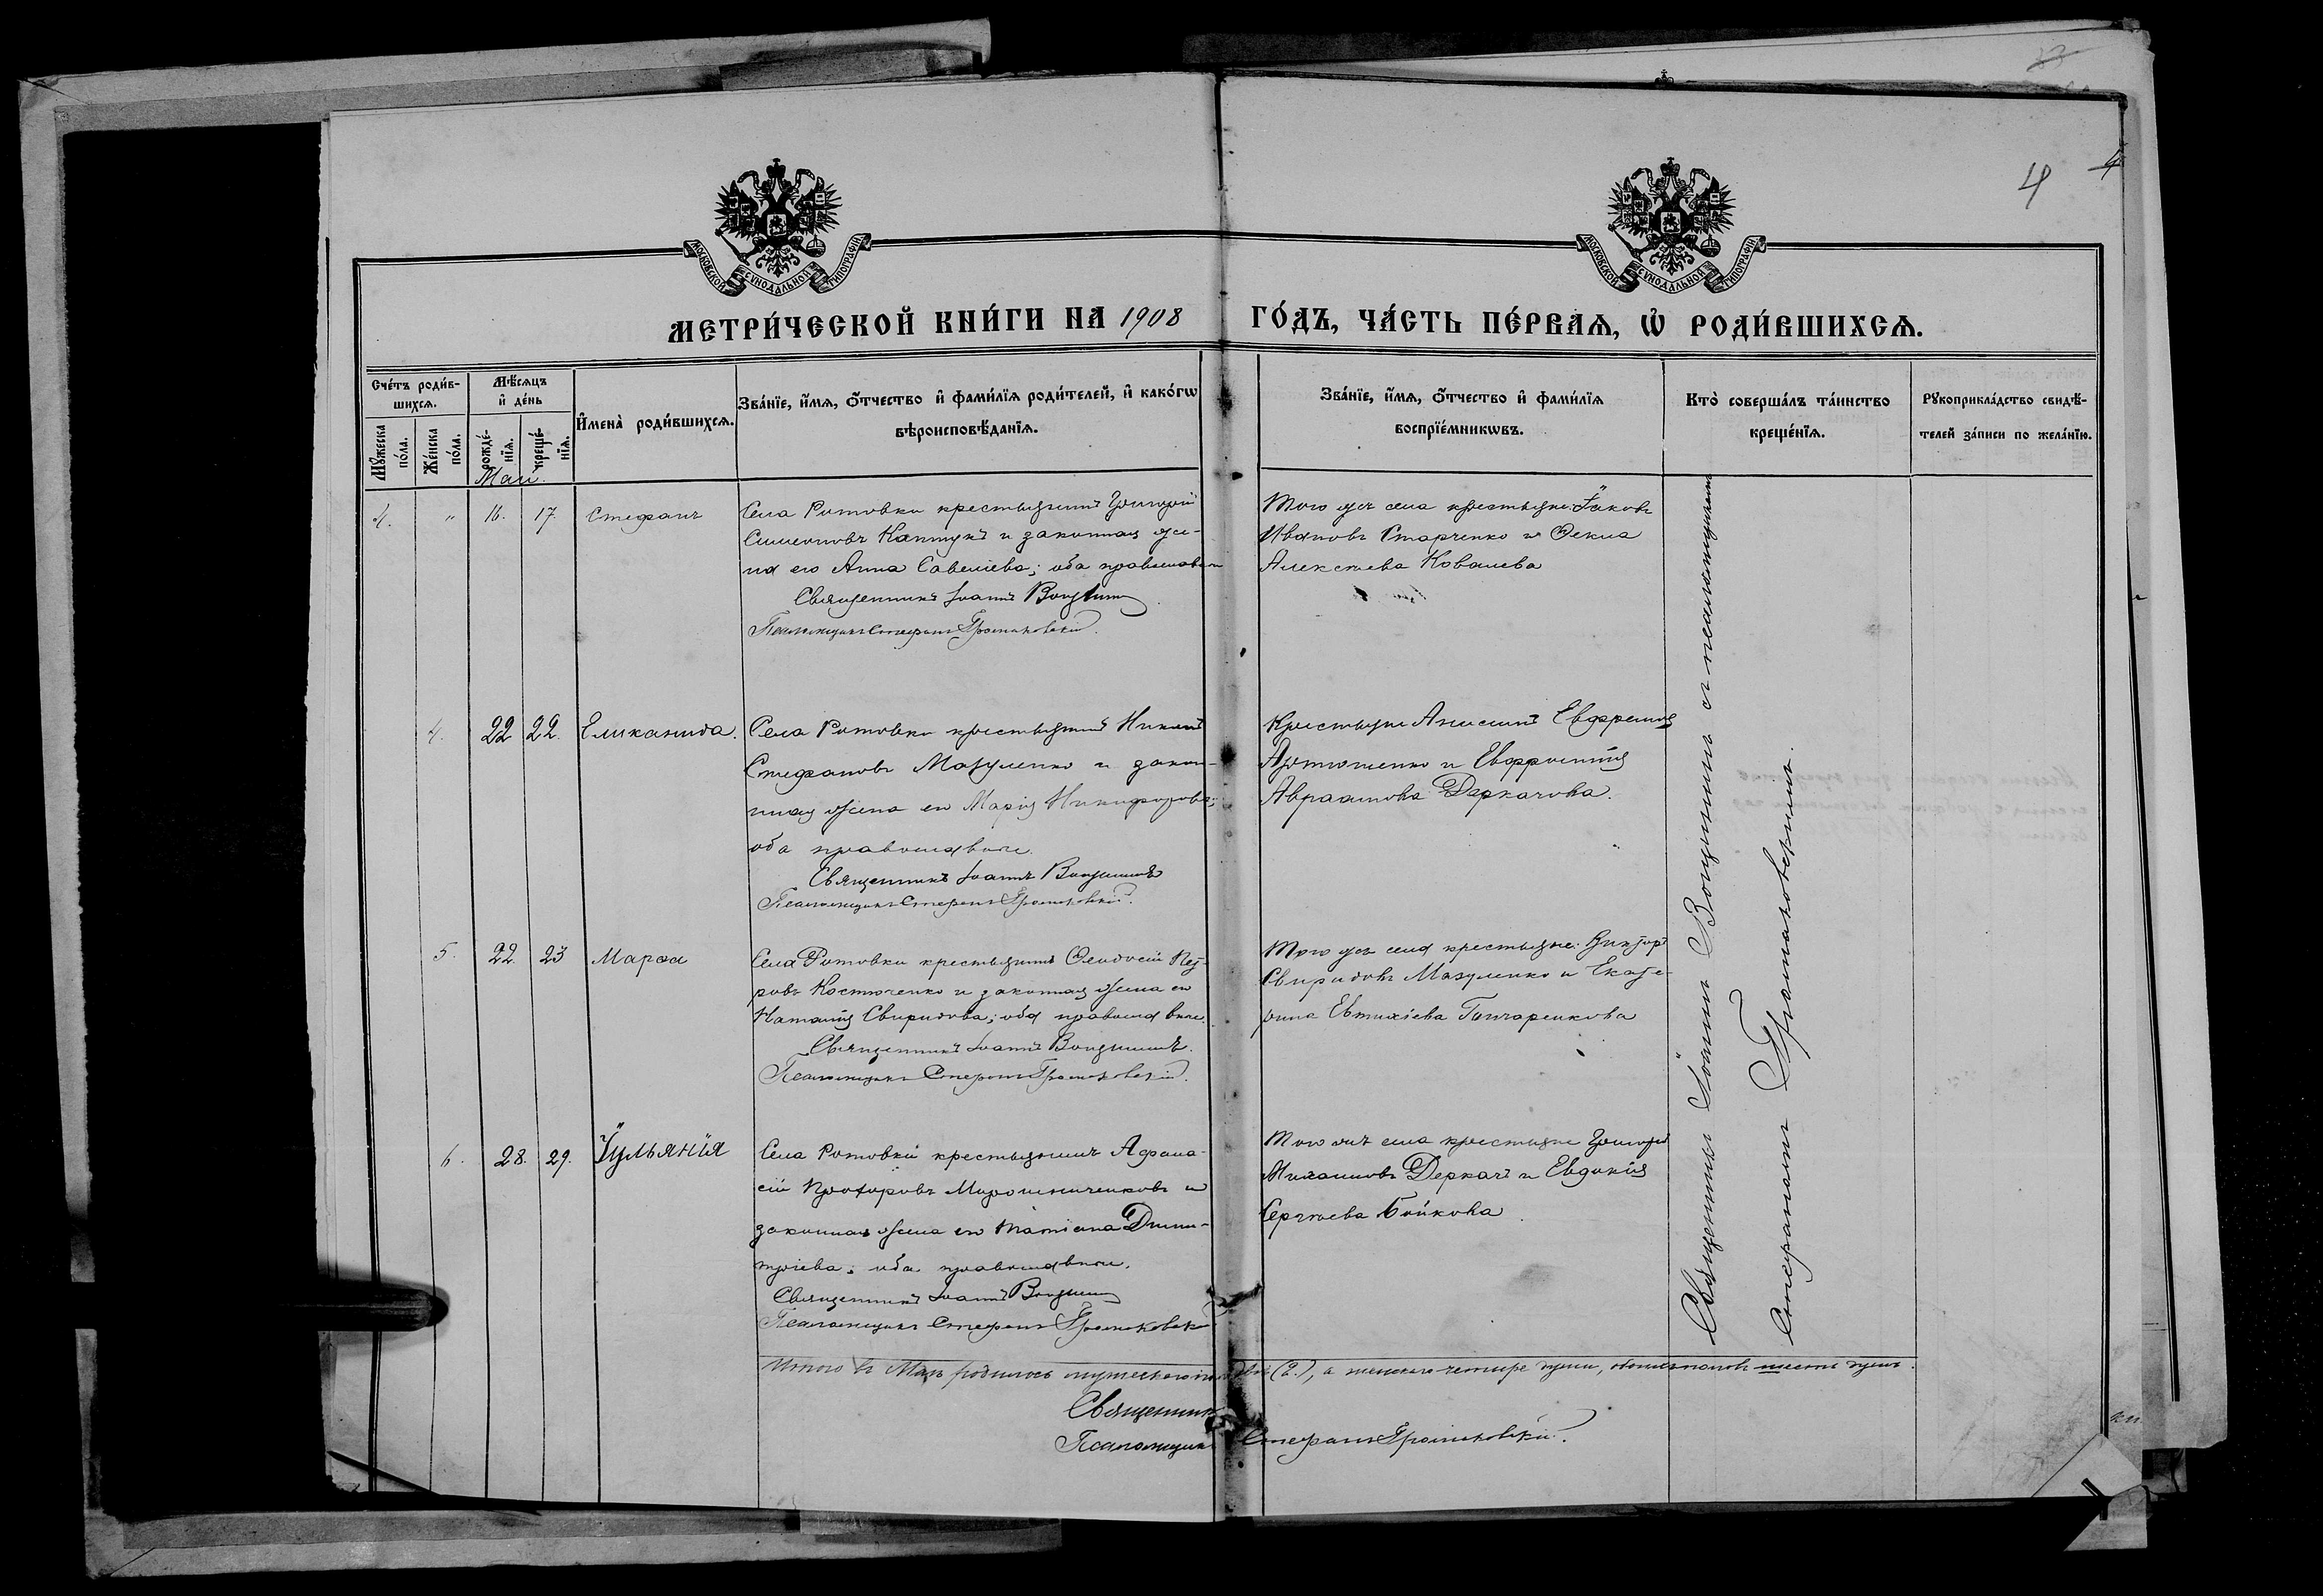 4
4
МОСКОВСКОЙ СѴНОДАЛЬНОЙ ТИПОГРАФІИ
МОСКОВСКОЙ СѴНОДАЛЬНОЙ ТИПОГРАФІИ
МЕТРИ́ЧЕСКОЙ КНИ́ГИ НА 1908 ГО́ДЪ, ЧА́СТЬ ПЕ́РВАѦ, Ѡ҆ РОДИ́ВШИХСѦ.
Сче́тъ роди́в-
шихсѧ.
Мꙋ́жеска по́ла.
Же́нска по́ла.
Мѣ́сѧцъ
и҆ де́нь
рожде́-
нїѧ.
креще́-
нїѧ.
И҆мена̀ роди́вшихсѧ.
Зва́нїе, и҆́мѧ, ѻ҆́тчество и҆ фами́лїѧ роди́телей, и҆ како́гѡ
вѣроисповѣ́данїѧ.
Зва́нїе, и҆́мѧ, ѻ҆́тчество и҆ фами́лїѧ
воспрїе́мникѡвъ.
Кто̀ соверша́лъ та́инство
креще́нїѧ.
Рꙋкоприкла́дство свидѣ́-
телей за́писи по жела́нїю.
Май.
4. " 16. 17. Стефанъ
Села Ротовки крестьянинъ Григорій
Симеоновъ Каптукъ и законная же-
на его Анна Савеліева; оба православн
Священникъ Іоаннъ
Псаломщикъ Стефанъ
Того же села крестьяне: Іаковъ
Ивановъ Старченко и Ѳекла
Алексѣева Ковалева
4. 22 22. Гликанида.
Села Ротовки крестьянинъ
Стефановъ Мазуленко и закон-
ная жена его Марія Никифорова;
оба православные.
Священникъ Іоаннъ
Псаломщикъ Стефанъ
Крестьяне Анисимъ Евфремовъ
и Евфросинія
Авраамова Деркачова.
5. 22. 23 Марѳа
Села Ротовки крестьянинъ Ѳеодосій Пет-
ровъ Костюченко и законная жена его
Наталія Свиридова; оба православные.
Священникъ Іоаннъ
Псаломщикъ Стефанъ
Того же села крестьяне: Викторъ
Свиридовъ Мазуленко и Екате-
рина Евтихіева Гончаренкова
6. 28. 29. Іульянія
Села Ротовки крестьянинъ Афана-
сій Прохоровъ Мирошниченковъ и
законная жена его Татіана Дими-
тріева; оба православные.
Священникъ Іоаннъ
Псаломщикъ Стефанъ
Того же села крестьяне Григорій
Михаиловъ Деркачъ и Евдокія
Сергѣева Бойкова.
Священникъ Іоаннъ съ псаломщикомъ
Стефаномъ
Итого въ Маѣ родилось мужескаго два (2), а женскаго четыре души, обоихъ половъ шесть душъ.
Священникъ
Псаломщикъ Стефанъ